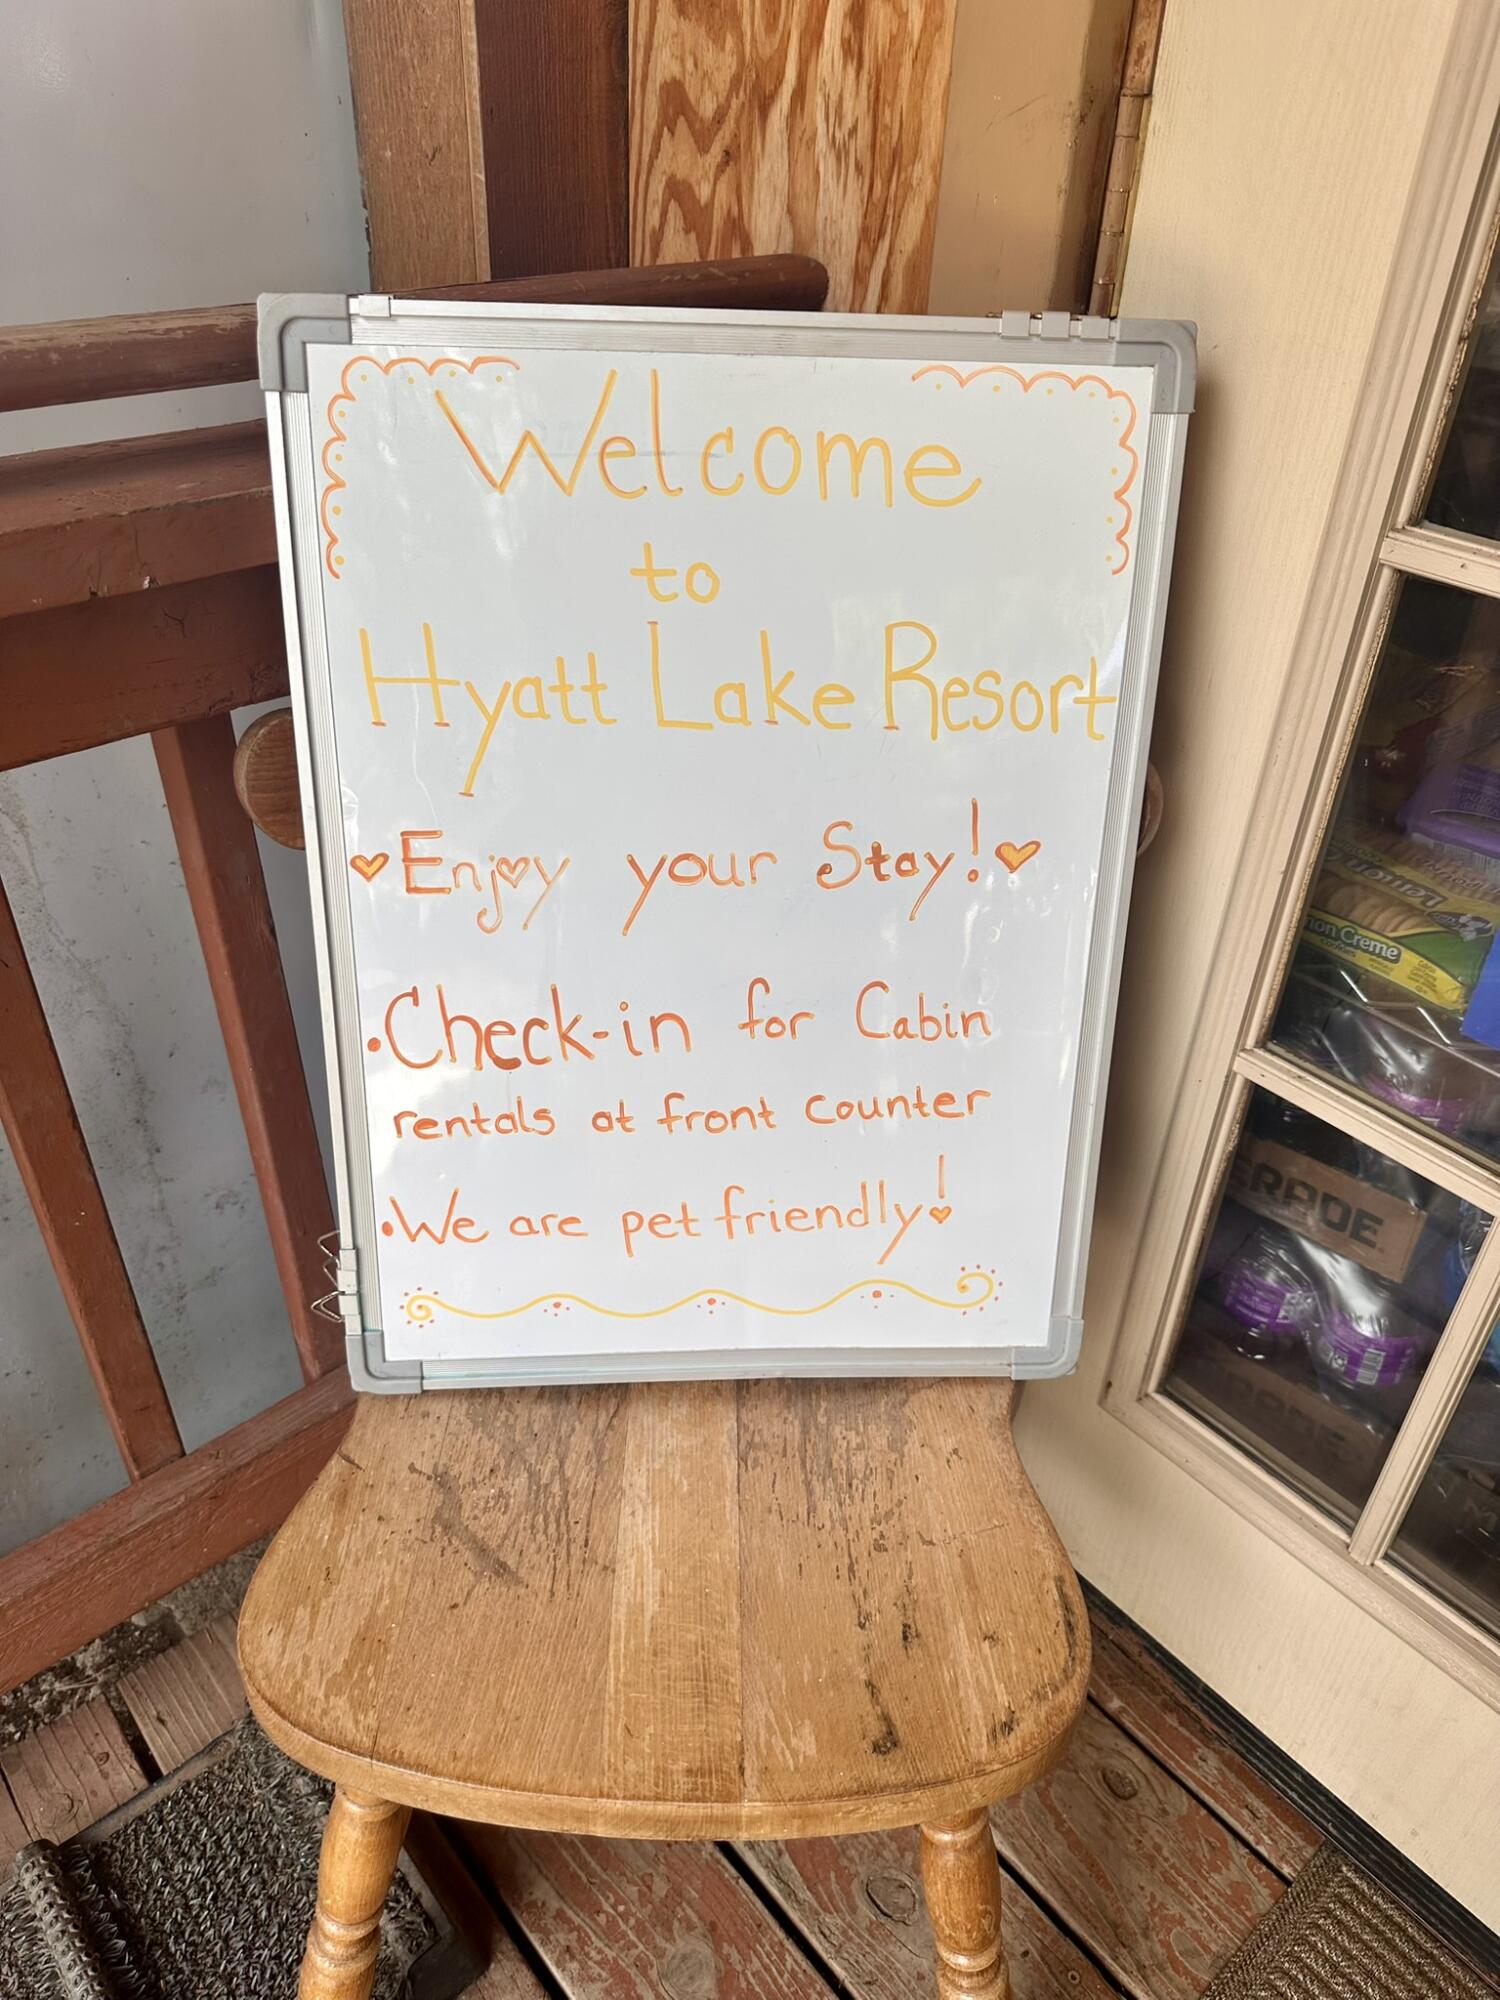 Welcome
to
Hyatt Lake Resort
Enjoy your Stay!
•Check-in for Cabin
rentals at front counter
•We are pet friendly!
Lemon
non Creme
cookies
ERADE